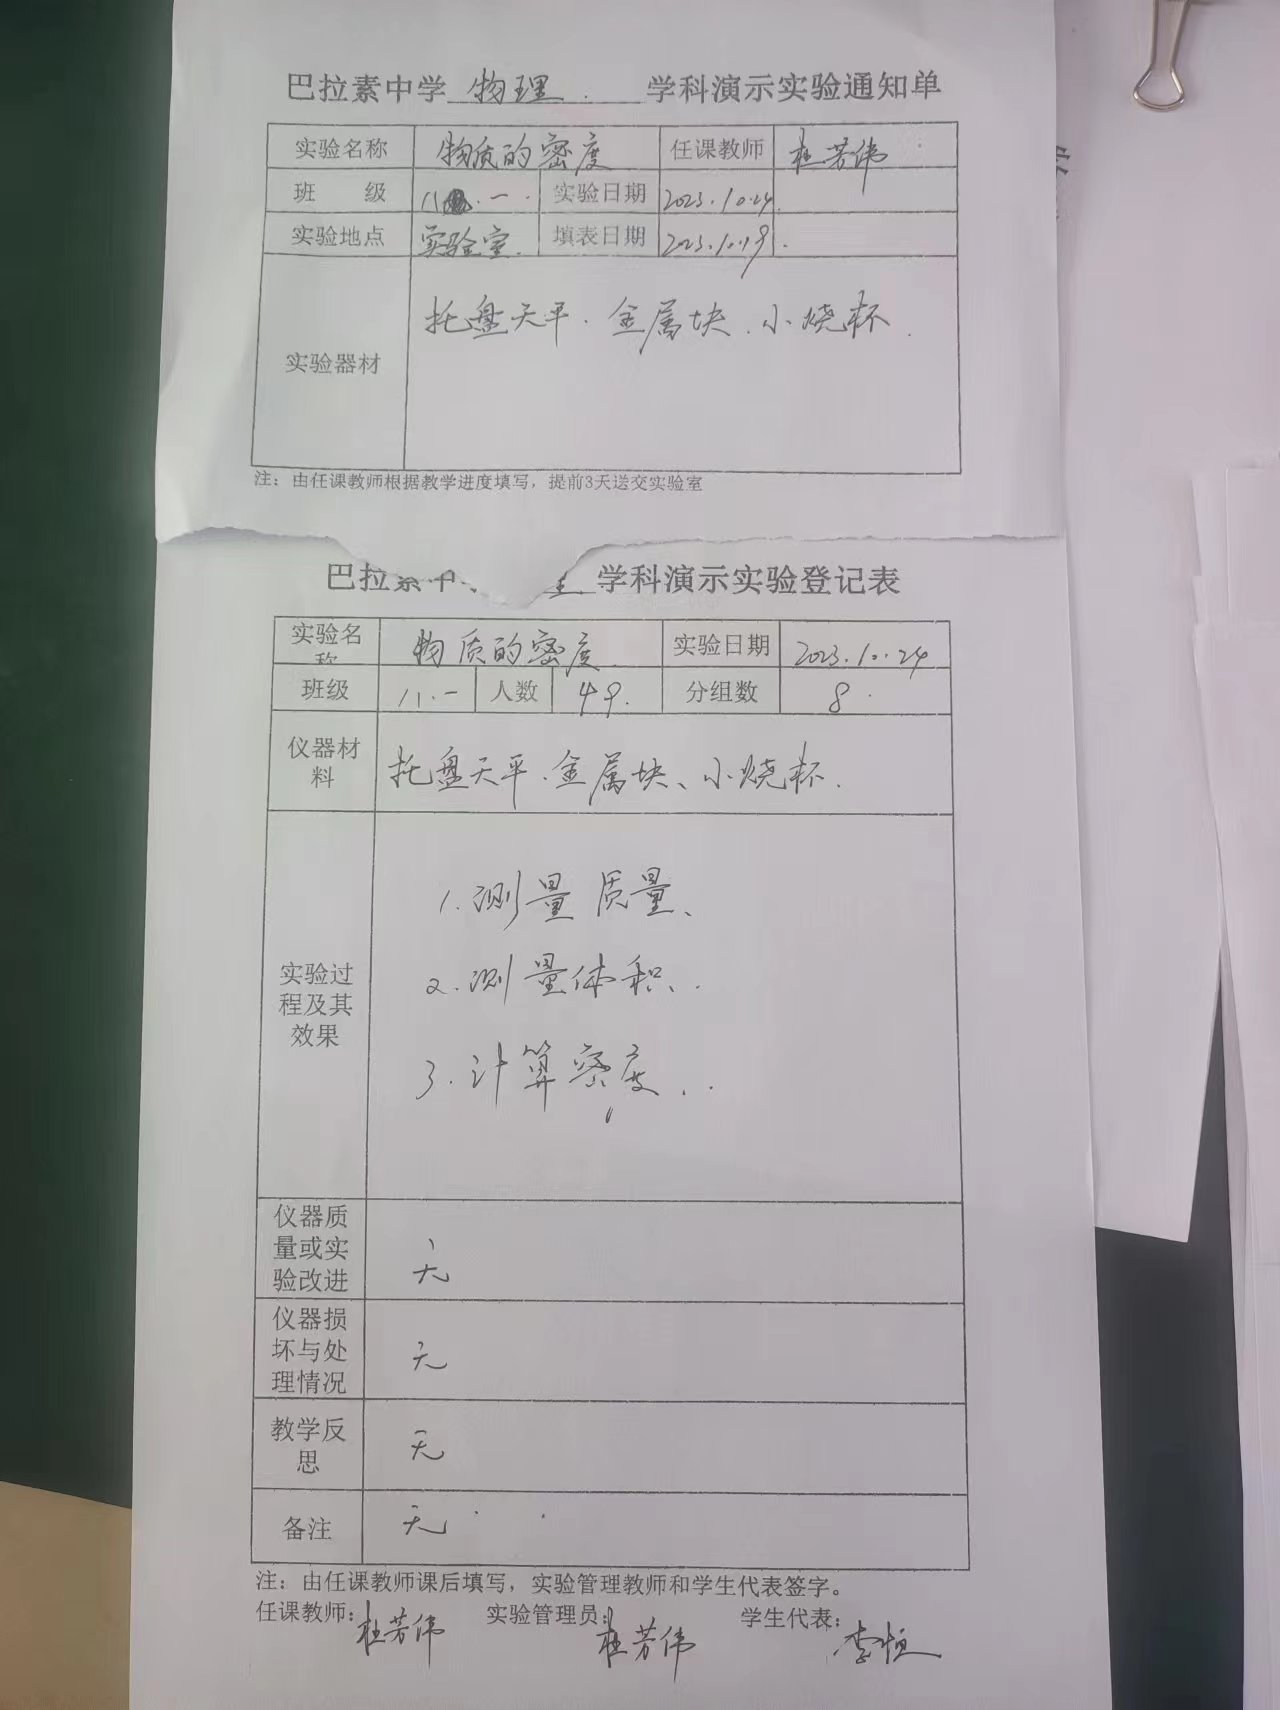 巴拉素中学 物理. 学科演示实验通知单
实验名称 物质的密度 任课教师 杜芳伟
班 级 八.一. 实验日期 2023.10.24
实验地点 实验室. 填表日期 2023.10.19.
实验器材 托盘天平、金属块、小烧杯.
注：由任课教师根据教学进度填写，提前3天送交实验室
巴拉素中 学科演示实验登记表
实验名称 物质的密度 实验日期 2023.10.24
班级 八.一 人数 49. 分组数 8.
仪器材料 托盘天平、金属块、小烧杯.
实验过程及其效果
1.测量质量、
2.测量体积、.
3.计算密度..
仪器质量或实验改进 无
仪器损坏与处理情况 无
教学反思 无
备注 无
注：由任课教师课后填写，实验管理教师和学生代表签字。
任课教师：杜芳伟 实验管理员：杜芳伟 学生代表：李恒